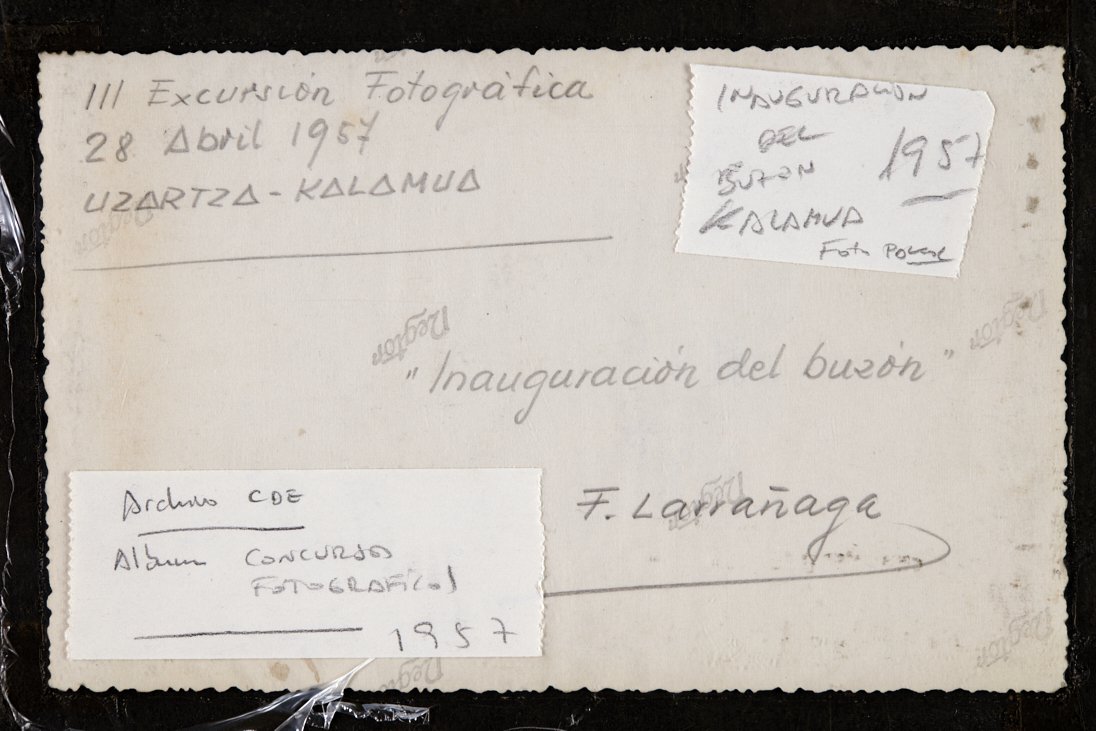 III Excursión Fotográfica
28 Abril 1957
UZARTZA - KALAMUA
INAUGURACION
DEL
BUZON
KALAMUA
1957
Foto
"Inauguración del buzón"
F. Larrañaga
Archivo CDE
Album CONCURSOS
FOTOGRAFICOS
1957
Negtor
Negtor
Negtor
Negtor
Negtor
Negtor